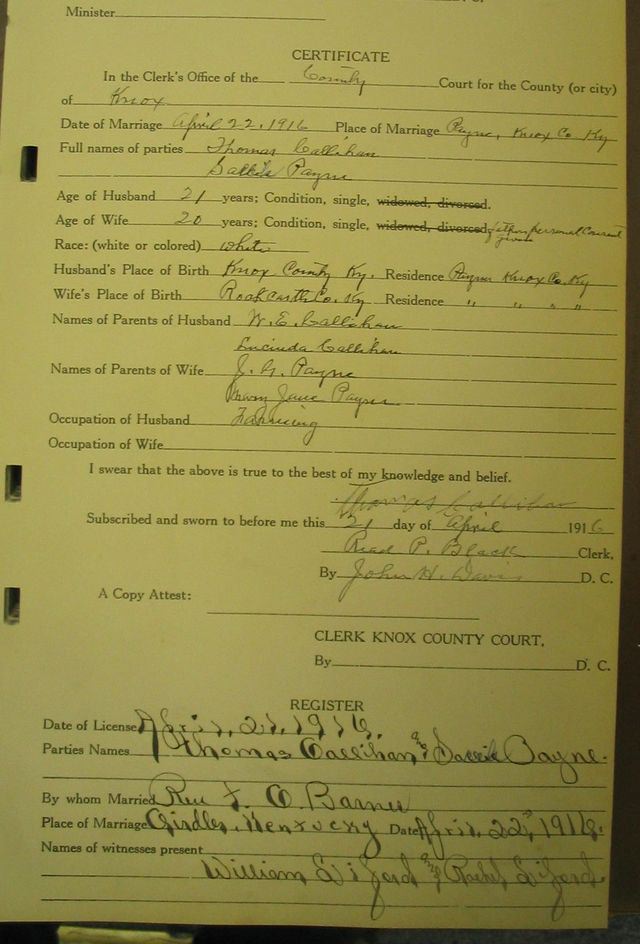 Minister
CERTIFICATE
In the Clerk's Office of the County Court for the County (or city)
of Knox
Date of Marriage April 22, 1916 Place of Marriage Payne, Knox Co Ky
Full names of parties Thomas Callihan
Sallie Payne
Age of Husband 21 years; Condition, single, widowed, divorced.
Age of Wife 20 years; Condition, single, widowed, divorced father personal Consent
given
Race: (white or colored) white
Husband's Place of Birth Knox County Ky. Residence Payne Knox Co. Ky
Wife's Place of Birth Rockcastle Co. Ky Residence " " " "
Names of Parents of Husband W. E. Callihan
Lucinda Callihan
Names of Parents of Wife J. G. Payne
Mary Jane Payne
Occupation of Husband Farming
Occupation of Wife
I swear that the above is true to the best of my knowledge and belief.
Thomas Callihan
Subscribed and sworn to before me this 21 day of April 1916
Read P. Black Clerk.
By John H. Davis D. C.
A Copy Attest:
CLERK KNOX COUNTY COURT.
By D. C.
REGISTER
Date of License April, 21, 1916.
Parties Names Thomas Callihan & Sallie Payne.
By whom Married Rev F. O. Barnes
Place of Marriage Girdler, Kentucky Date April, 22, 1916.
Names of witnesses present
William & Rachel